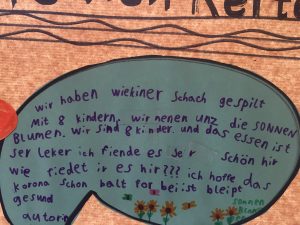 wir haben wiekiner Schach gespilt
Mit 8 kindern. wir nenen unz die SONNEN
Blumen. Wir sind 8 kinder. und das essen ist
ser leker ich fiende es ser schön hir
wie fiedet ir es hir??? ich hoffe das
korona schon balt for bei ist bleipt
gesund
autorin
sonnen